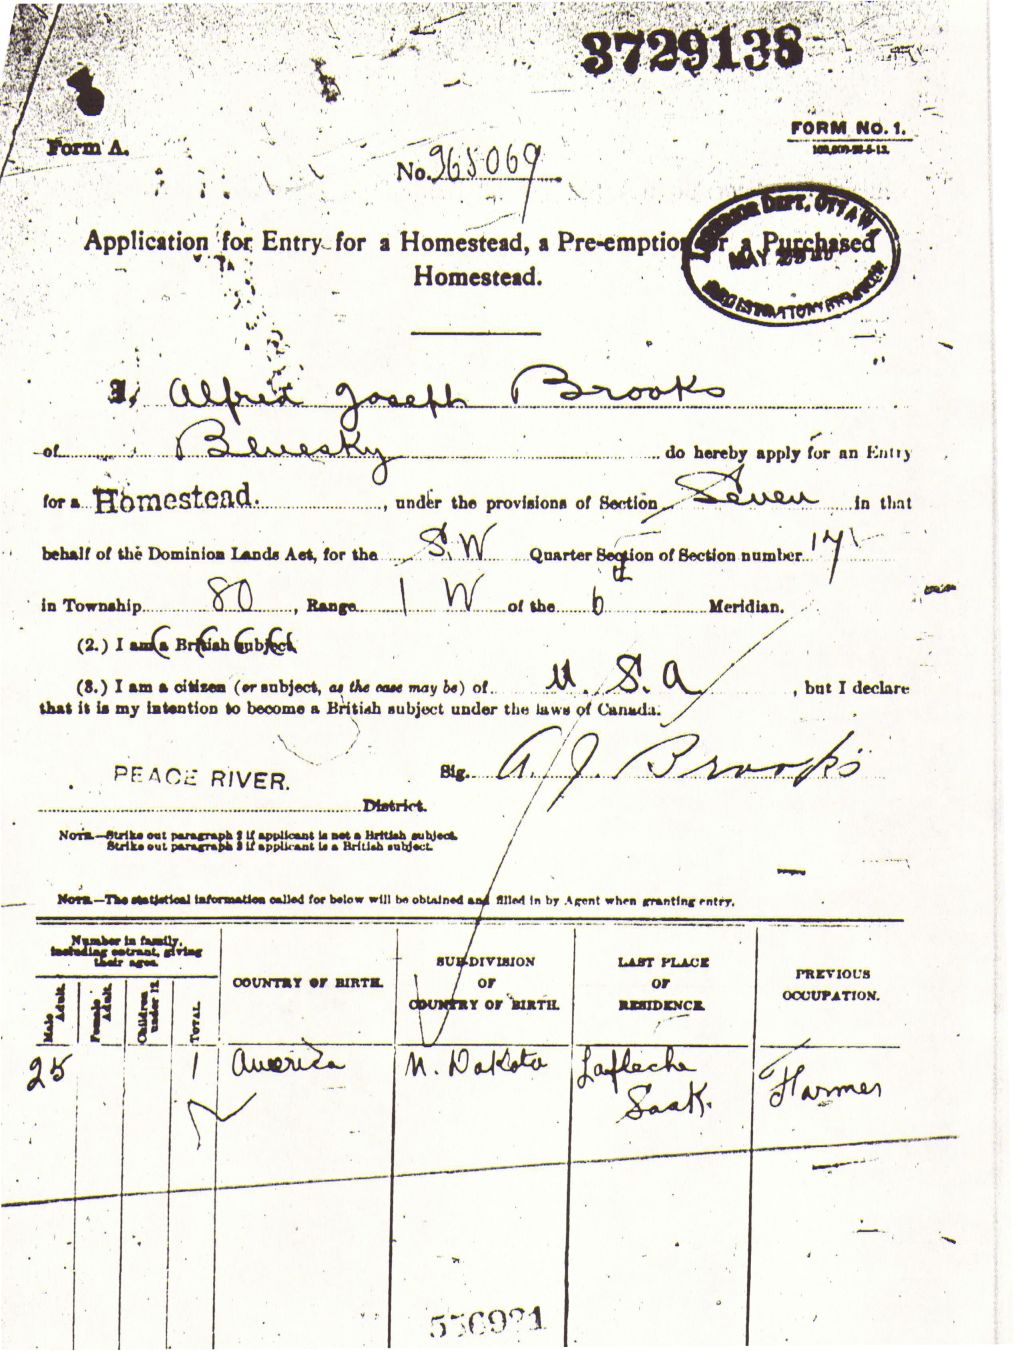 3729138
FORM NO. 1.
Form A.
No. 965069
INTERIOR DEPT, OTTAWA
MAY 25
REGISTRATION BRANCH
Application for Entry for a Homestead, a Pre-emption or a Purchased
Homestead.
I, Alfred Joseph Brooks
of Bluesky do hereby apply for an Entry
for a Homestead. , under the provisions of Section Seven in that
behalf of the Dominion Lands Act, for the S.W Quarter Section of Section number 17
in Township 80 , Range 1 W of the 6 Meridian.
(2.) I am a British subject.
(3.) I am a citizen (or subject, as the case may be) of U.S.A , but I declare
that it is my intention to become a British subject under the laws of Canada.
Sig. A. J. Brooks
PEACE RIVER.
District.
NOTE.—Strike out paragraph 2 if applicant is not a British subject.
Strike out paragraph 3 if applicant is a British subject.
NOTE.—The statistical information called for below will be obtained and filled in by Agent when granting entry.
Number in family, including entrant, giving their ages.
Male Adult. Female Adult. Children under 12 TOTAL.
COUNTRY OF BIRTH.
SUB-DIVISION OF COUNTRY OF BIRTH.
LAST PLACE OF RESIDENCE
PREVIOUS OCCUPATION.
25 1 America N. Dakota Lafleche Sask. Farmer